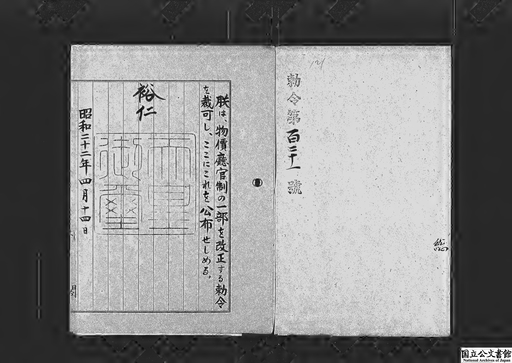 勅令第百二十一號
朕は、物價廳官制の一部を改正する勅令
を裁可し、ここにこれを公布せしめる。
裕仁
天皇御璽
昭和二十二年四月十四日
国立公文書館
National Archives of Japan